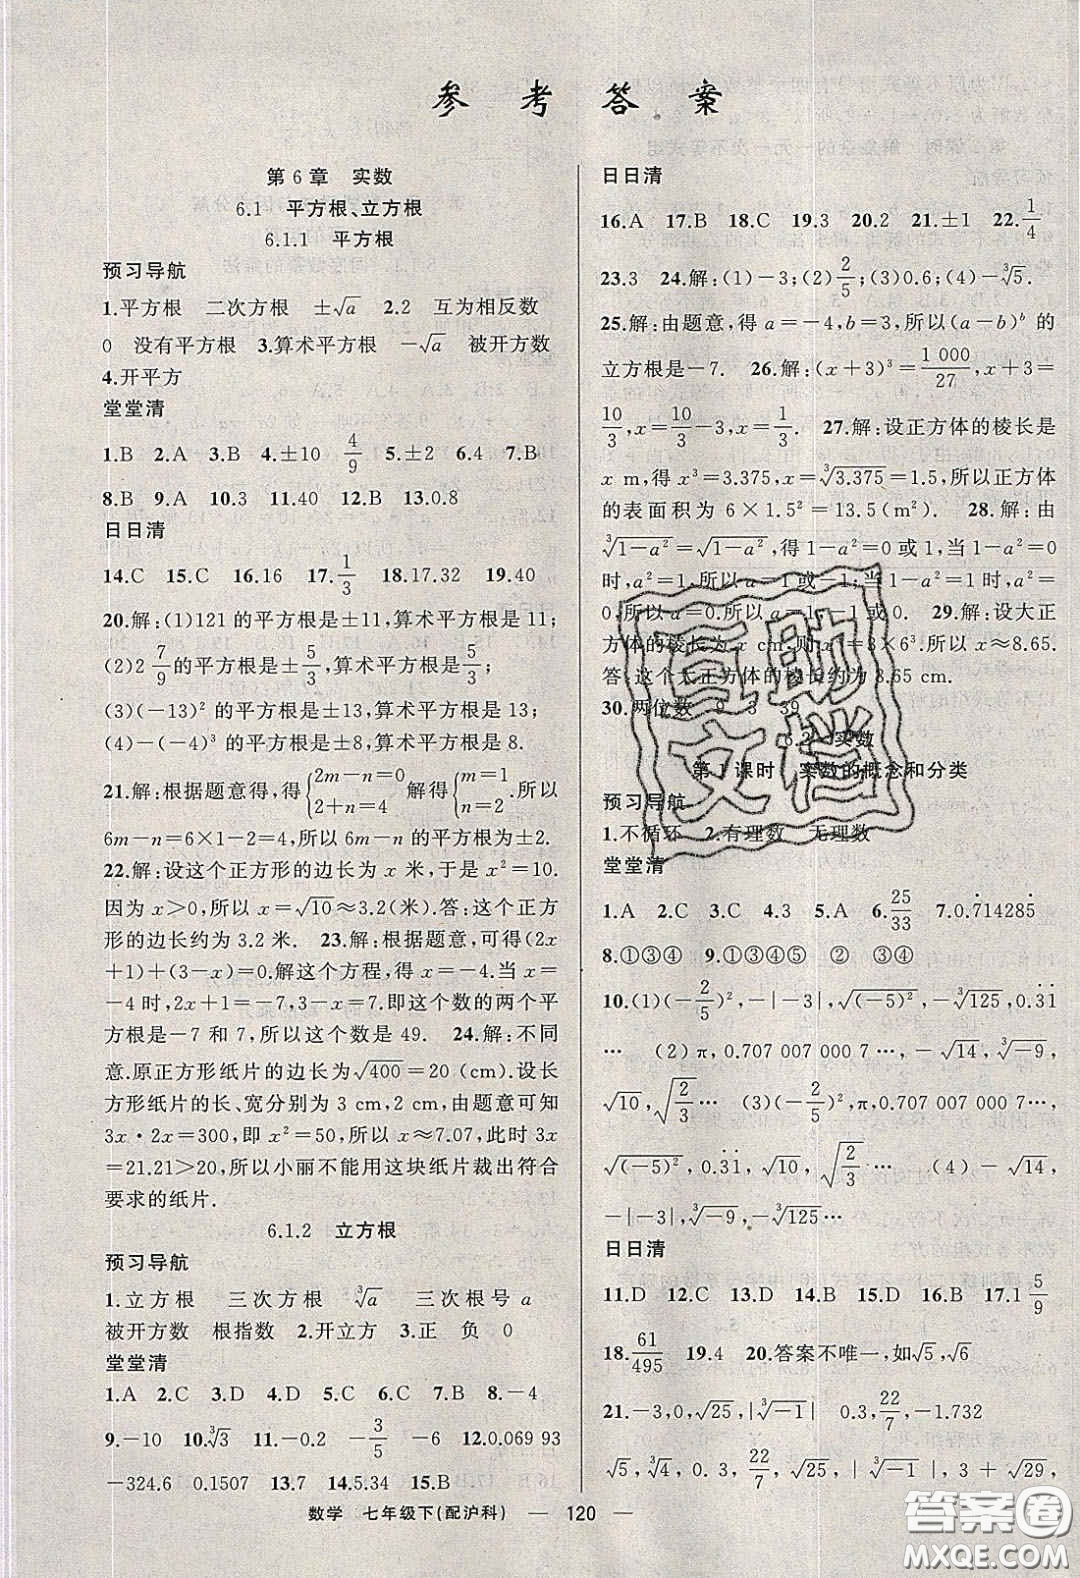 参考答案
第6章 实数
6.1 平方根、立方根
6.1.1 平方根
预习导航
1.平方根 二次方根 ±√a 2.2 互为相反数
0 没有平方根 3.算术平方根 -√a 被开方数
4.开平方
堂堂清
1.B 2.A 3.B 4.±10 4/9 5.±2 6.4 7.B
8.B 9.A 10.3 11.40 12.B 13.0.8
日日清
14.C 15.C 16.16 17.1/3 18.17.32 19.40
20.解:(1)121的平方根是±11,算术平方根是11;
(2)2 7/9的平方根是±5/3,算术平方根是5/3;
(3)(-13)²的平方根是±13,算术平方根是13;
(4)-(-4)³的平方根是±8,算术平方根是8.
21.解:根据题意得,得{2m-n=0, 2+n=4, 解得{m=1, n=2, 所以
6m-n=6×1-2=4,所以6m-n的平方根是±2.
22.解:设这个正方形的边长为x米,于是x²=10.
因为x>0,所以x=√10≈3.2(米).答:这个正方
形的边长约为3.2米. 23.解:根据题意,可得(2x
+1)+(3x-6)=0.解这个方程,得x=-4.当x=
-4时,2x+1=-7,3x-5=7.即这个数的两个平
方根是-7和7,所以这个数是49. 24.解:不同
意.原正方形纸片的边长为√400=20(cm).设长
方形纸片的长、宽分别为3 cm,2 cm,由题意可知
3x·2x=300,即x²=50,所以x≈7.07,此时3x
=21.21>20,所以小丽不能用这块纸片裁出符合
要求的纸片.
6.1.2 立方根
预习导航
1.立方根 三次方根 ∛a 三次根号a
被开方数 根指数 2.开立方 3.正 负 0
堂堂清
1.A 2.C 3.D 4.D 5.C 6.C 7.B 8.-4
9.-10 10.∛3 11.-0.2 -3/5 -6 12.0.069 93
-324.6 0.1507 13.7 14.5.34 15.B
日日清
16.A 17.B 18.C 19.3 20.2 21.±1 22.1/4
23.3 24.解:(1)-3;(2)2/5;(3)0.6;(4)-∛5.
25.解:由题意,得a=-4,b=3,所以(a-b)ᵇ的
立方根是-7. 26.解:(x+3)³=1 000/27,x+3=
10/3,x=10/3-3,x=1/3. 27.解:设正方体的棱长是
x m,得x³=3.375,x=∛3.375=1.5,所以正方体
的表面积为6×1.5²=13.5(m²). 28.解:由
∛1-a²=√1-a²,得1-a²=0或1,当1-a²=0
时,a²=1.所以a=1或-1;当1-a²=1时,a²=
0.所以a=0.所以a=1,-1或0. 29.解:设大正
方体的棱长为x cm,则x³=3×6³.所以x≈8.65.
答:这个大正方体的棱长约为8.65 cm.
30.两位数 9 3 39
6.2 实数
第1课时 实数的概念和分类
预习导航
1.不循环 2.有理数 无理数
堂堂清
1.A 2.C 3.C 4.3 5.A 6.25/33 7.0.7̇14285̇
8.①③④ 9.①③④⑤ ② ③④
10.(1)(-2/5)²,-|-3|,√(-5)²,-∛125,0.3̇1̇
… (2)π,0.707 007 000 7…,-√14,∛-9,
√10,√2/3… (3)(-2/5)²,π,0.707 007 000 7…,
√(-5)²,0.3̇1̇,√10,√2/3… (4)-√14,
-|-3|,∛-9,-∛125…
日日清
11.D 12.C 13.D 14.B 15.C 16.C 17.1 5/9
18.61/495 19.4 20.答案不唯一,如√5,√6
21.-3,0,√25,|∛-1| 0.3,22/7,-1.732
√5,√4,0.3,22/7,√25,|∛-1|,3+√29,
数学 七年级下(配沪科) — 120 —
互助文档
答案圈
MXQE.COM